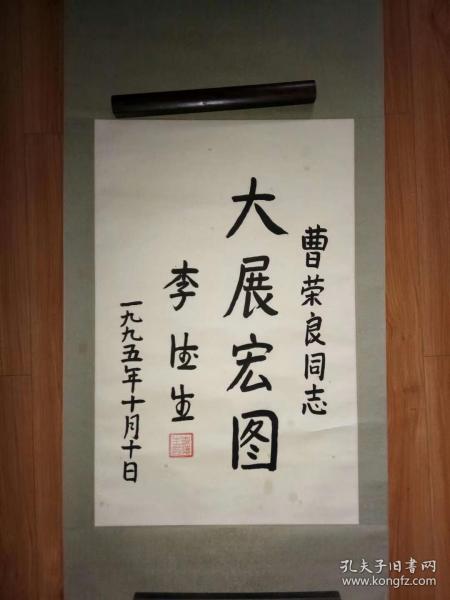 曹荣良同志
大展宏图
李德生
一九九五年十月十日
孔夫子旧书网
www.kongfz.com